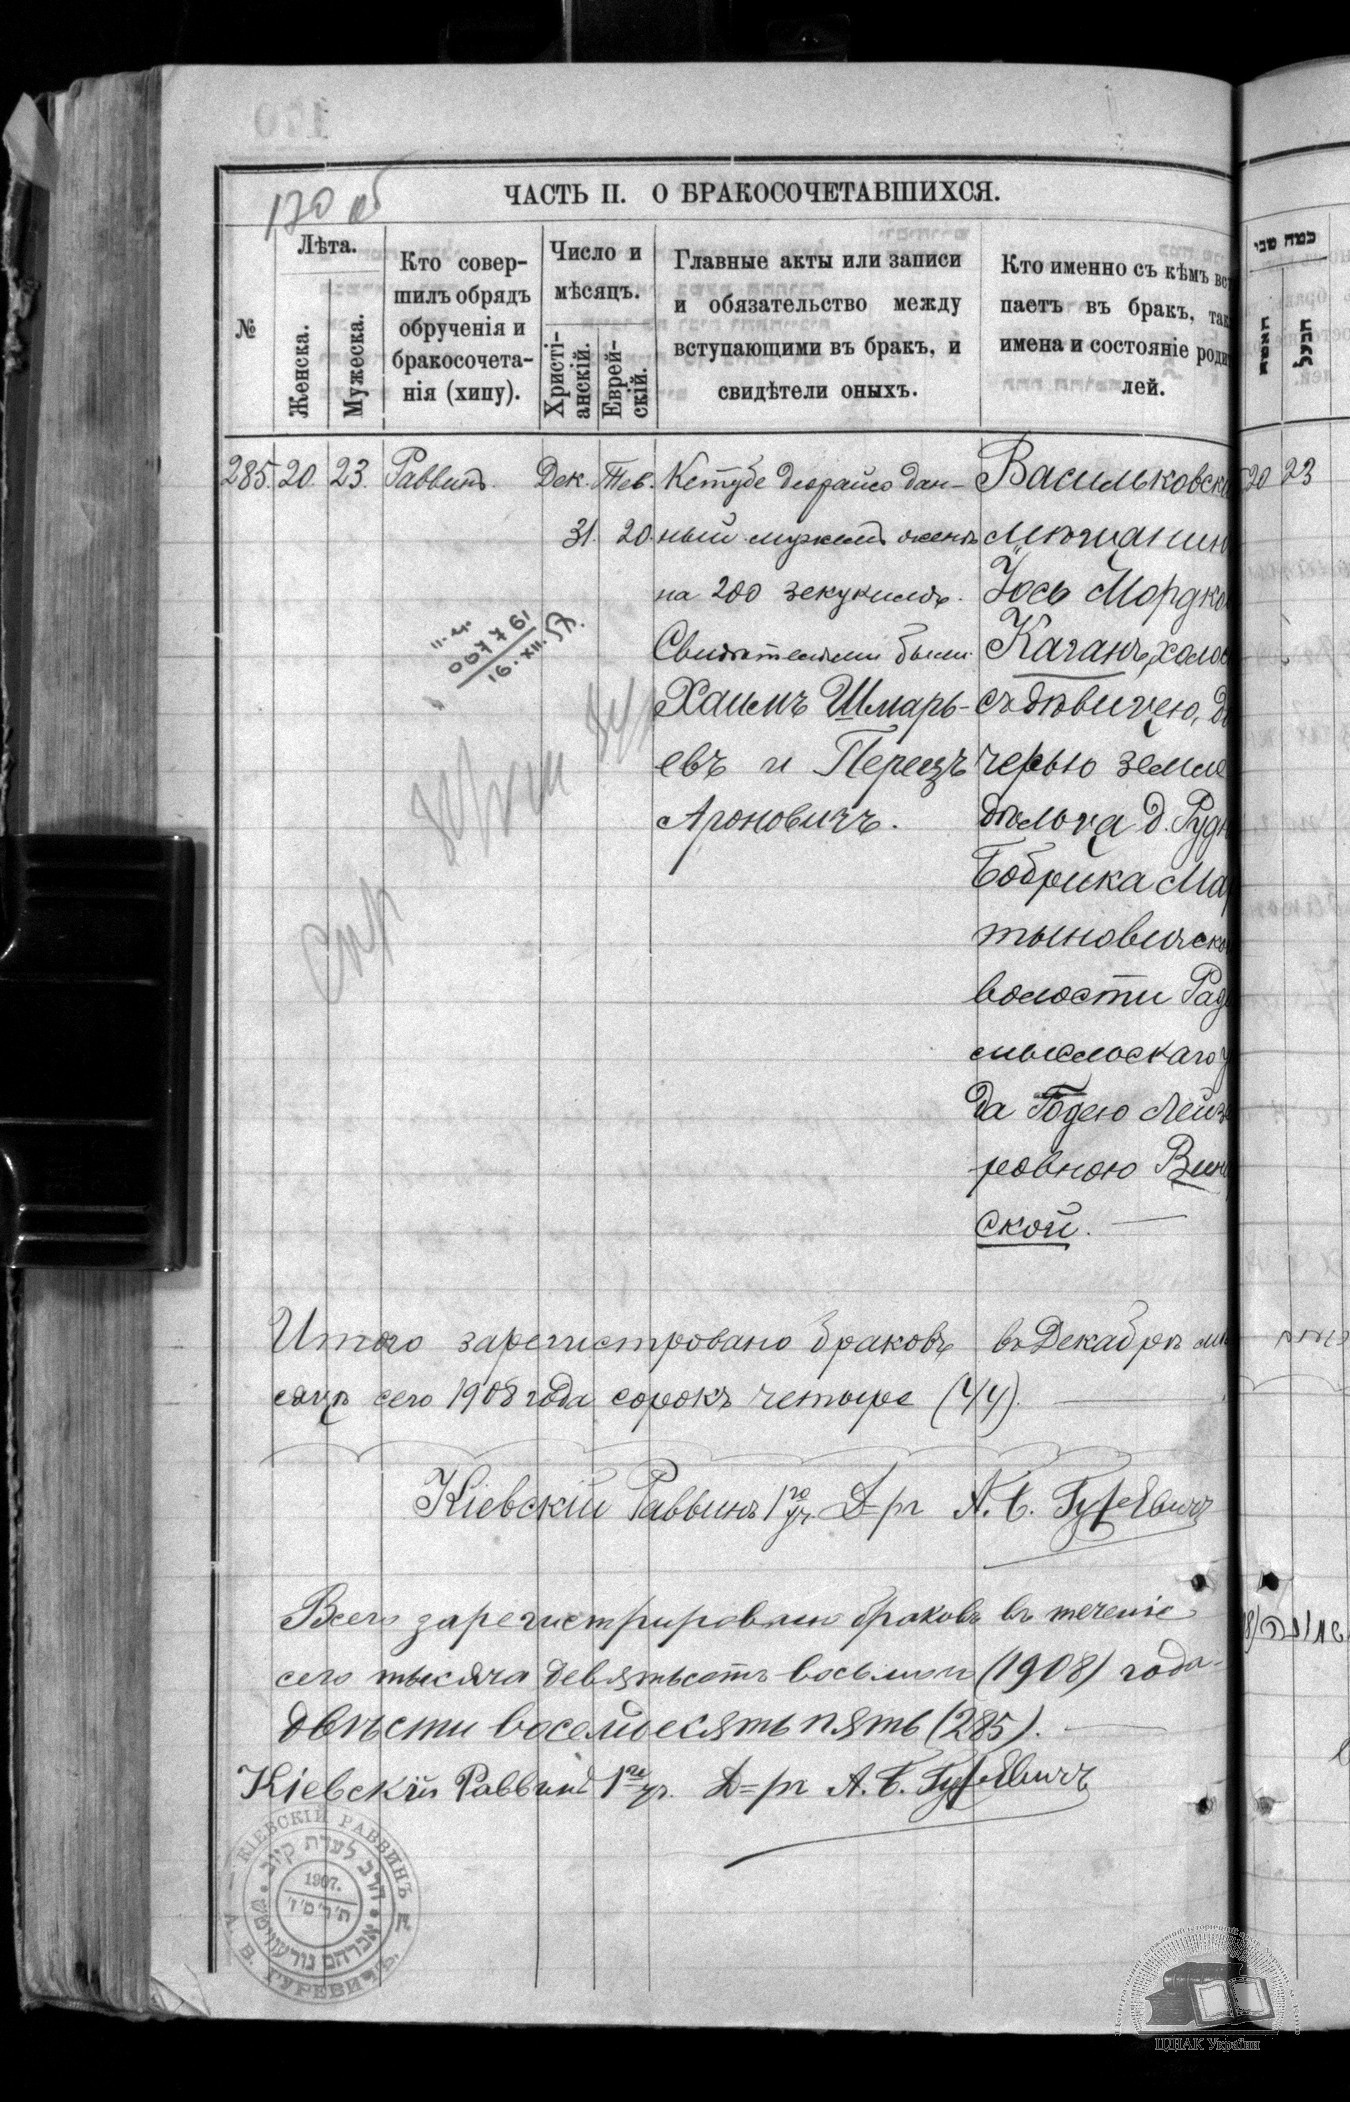 170 об
ЧАСТЬ II. О БРАКОСОЧЕТАВШИХСЯ.
№
Лѣта.
Женска.
Мужеска.
Кто совер-
шилъ обрядъ
обрученія и
бракосочета-
нія (хипу).
Число и
мѣсяцъ.
Христі-
анскій.
Еврей-
скій.
Главные акты или записи
и обязательство между
вступающими въ бракъ, и
свидѣтели оныхъ.
Кто именно съ кѣмъ вст
паетъ въ бракъ, так
имена и состояніе роди
лей.
כמה שני
האשה
הבעל
285. 20. 23. Раввинъ. Дек. Тев.
31. 20.
Кетубе деорайсо дан-
ный мужемъ женѣ
на 200 зекукимъ.
Свидѣтелями были
Хаимъ Шмарь-
евъ и Перецъ
Ароновичъ.
Васильковск
мѣщанин
Іось Мордко
Каганъ, холос
съ дѣвицею, до
черью земле
дѣльца д. Рудн
Бобрика Мар
тыновичско
волости Рад
мысльскаго у
да Годею Лейзе
ровною Вин
ской.
20 23
007761
16.XII.57.
Итого зарегистровано браковъ въ Декабрѣ мѣ
сяцѣ сего 1908 года сорокъ четыре (44).
Кіевскій Раввинъ 1го уч. Д=ръ А. Б. Гуревичъ
Всего зарегистрировано браковъ въ теченіе
сего тысяча девятьсотъ восьмого (1908) года
двѣсти восемьдесятъ пять (285).
Кіевскій Раввинъ 1го уч. Д=ръ А. Б. Гуревичъ
КІЕВСКІЙ РАВВИНЪ
А. Б. ГУРЕВИЧЪ.
הרב לעדת קיוב
אברהם גורעוויטש
1907.
ЦДІАК України